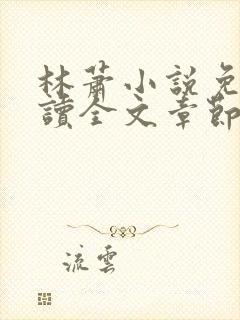 林蕭小說免
讀全文章節
流雲